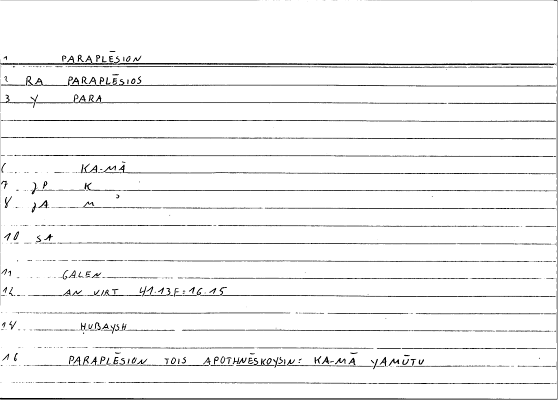 1 PARAPLĒSION
2 RA PARAPLĒSIOS
3 Y PARA
6 KA-MĀ
7 JP K
8 JA M
10 SA
11 GALEN
12 AN VIRT 41.13F:16.15
14 ḤUBAYSH
16 PARAPLĒSION TOIS APOTHNĒSKOYSIN: KA-MĀ YAMŪTU